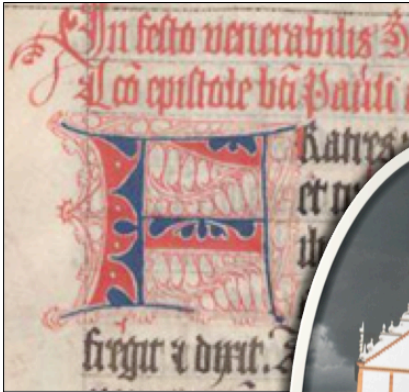 In festo venerabilis
Lcō epistole bti Pauli
FRatres
et
fregit ⁊ dixit.